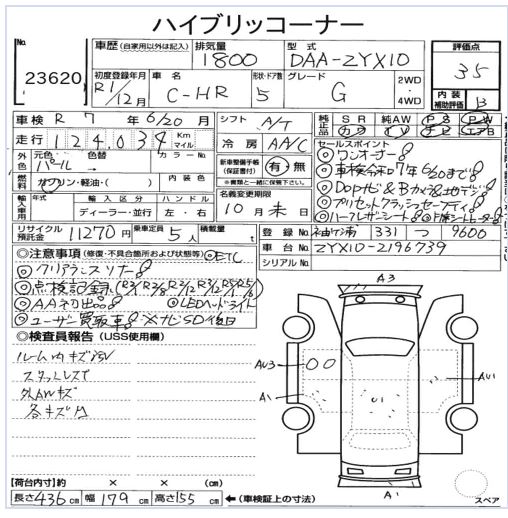 ハイブリッコーナー
No.
23620
車歴 (自家用以外は記入)
排気量
1800
型式
DAA-ZYX10
評価点
3.5
初度登録年月
R1/12月
車名
C-HR
形状・ドア数
5
グレード
G
2WD
・
4WD
内装
補助評価
B
車検 R 7年6/20月
シフト
A/T
純正品
SR
純AW
PS
PW
カワ
TV
ナビ
エアB
走行 124,034
Km
マイル
冷房
AA/C
セールスポイント
◎ワンオーナー
◎車検令和7年6/20まで
◎Dopナビ&Bカメラ&地デジ
◎プリセットクラッシュセーフティ
◎ハーフレザーシート
外色
元色
パール
色替
カラーNo.
新車整備手帳
(保証書付)
有・無
燃料
ガソリン・軽油・( )
内装色
※書類と一緒に保管して下さい。
輸入車用
年式
輸入区分
ハンドル
ディーラー・並行
左・右
名義変更期限
10月末日
リサイクル
預託金
11270円
乗車定員
5人
積載量
t
登録No
袖ケ浦 331 つ 9600
車台No
ZYX10-2196739
シリアルNo
◎注意事項 (修復・不具合箇所および状態等)
◎ETC
◎クリアランスソナー
◎点検記録
◎AA初出品
◎LEDヘッドライト
◎ユーザー買取車
※ナビSD後日
◎検査員報告 (USS使用欄)
ルーム内キズ
スタッドレス
外AWキズ
各キズ凹
A3
AU3
A1
U1
AU1
A1
スペア
【荷台内寸】約 × × cm
長さ436cm 幅179cm 高さ155cm ←(車検証上の寸法)